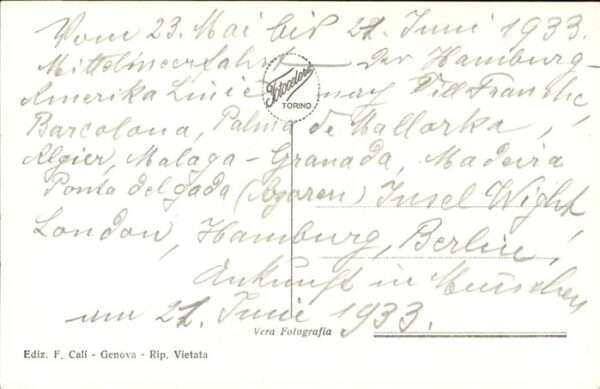 Vom 23. Mai bis 21. Juni 1933.
Mittelmeerfahrt der Hamburg-
Amerika Linie nach Vill Franche,
Fotocelere
TORINO
Barcelona, Palma de Mallorka,
Algier, Malaga - Granada, Madeira
Ponta del gada (Azoren) Insel Wight,
London, Hamburg, Berlin,
Ankunft in München
am 21. Juni 1933.
Vera Fotografia
Ediz. F. Calì - Genova - Rip. Vietata